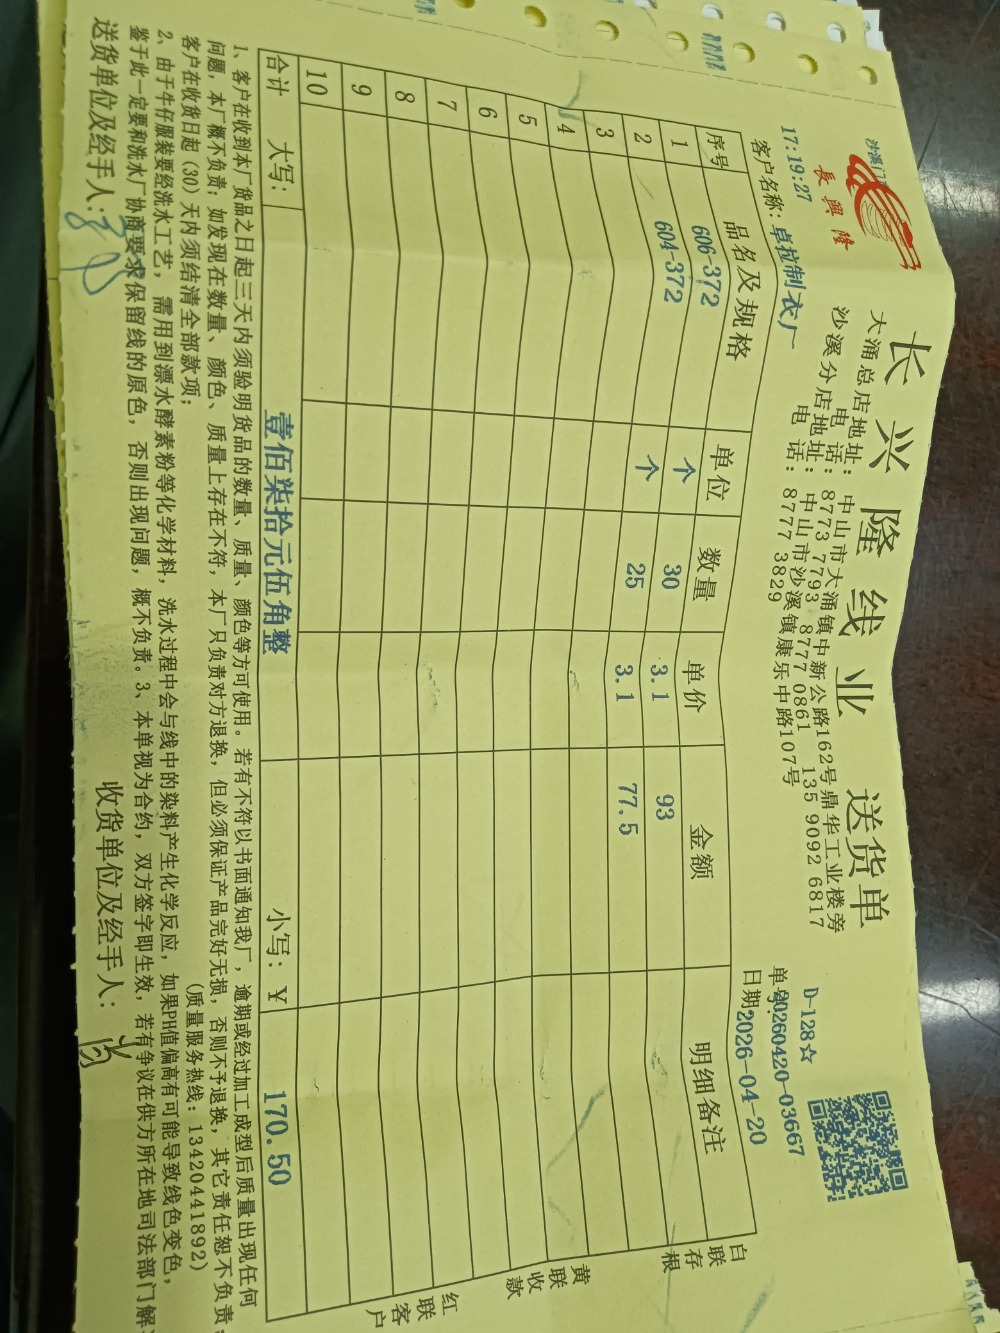 長興隆
长兴隆线业 送货单
大涌总店地址：中山市大涌镇中新公路162号鼎华工业楼旁
电话：8773 7793 8777 0861 135 9092 6817
沙溪分店地址：中山市沙溪镇康乐中路107号
电话：8777 3829
D-128☆
17:19:27
单号:20260420-03667
客户名称：卓拉制衣厂
日期:2026-04-20
序号 品名及规格 单位 数量 单价 金额 明细备注
1 606-372 个 30 3.1 93
2 604-372 个 25 3.1 77.5
3
4
5
6
7
8
9
10
合计 大写：壹佰柒拾元伍角整 小写：¥ 170.50
白联存根
黄联收款
红联客户
1、客户在收到本厂货品之日起三天内须验明货品的数量、质量、颜色等方可使用。若有不符以书面通知我厂，逾期或经过加工成型后质量出现任何
问题，本厂概不负责；如发现在数量、颜色、质量上存在不符，本厂只负责对方退换，但必须保证产品完好无损，否则不予退换，其它责任恕不负责；
客户在收货日起(30)天内须结清全部款项； (质量服务热线：13420441892)
2、由于牛仔服装要经洗水工艺，需用到漂水酵素粉等化学材料，洗水过程中会与线中的染料产生化学反应，如果PH值偏高有可能导致线色变色，
鉴于此一定要和洗水厂协商要求保留线的原色，否则出现问题，概不负责。3、本单视为合约，双方签字即生效，若有争议在供方所在地司法部门解
送货单位及经手人： 收货单位及经手人：